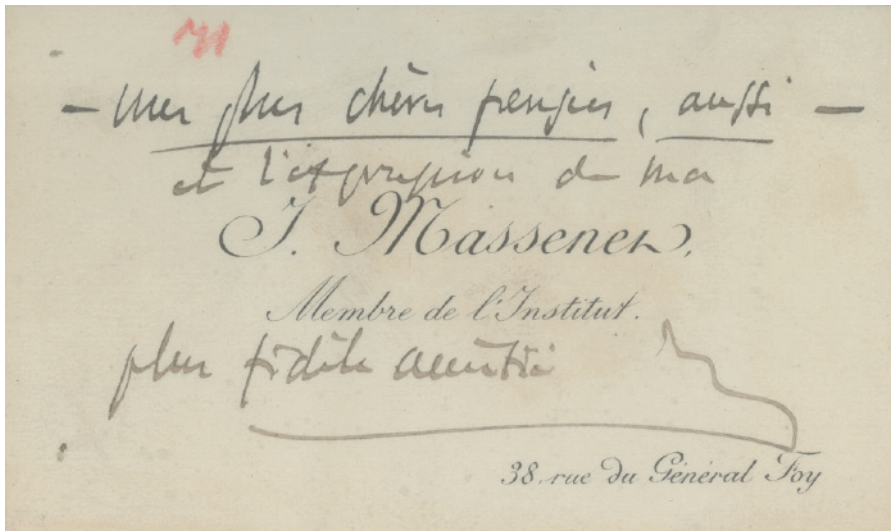 — mes plus chères pensées, aussi —
et l'expression de ma
J. Massenet,
Membre de l'Institut.
plus fidèle amitié
38, rue du Général Foy